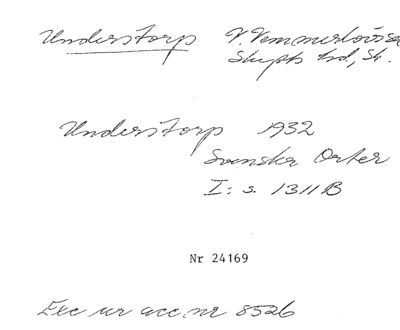 Understorp V. Vemmerlövs sn
Skytts hd, Sk.
Understorp 1932
Svenska Orter
I: s. 1311 B
Nr 24169
Exc ur acc. nr 8526